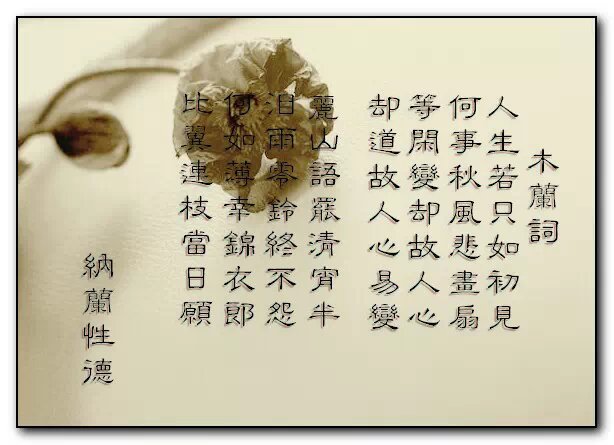 木蘭詞
人生若只如初見
何事秋風悲畫扇
等閑變却故人心
却道故人心易變
麗山語罷清宵半
泪雨零鈴終不怨
何如薄幸錦衣郎
比翼連枝當日願
納蘭性德